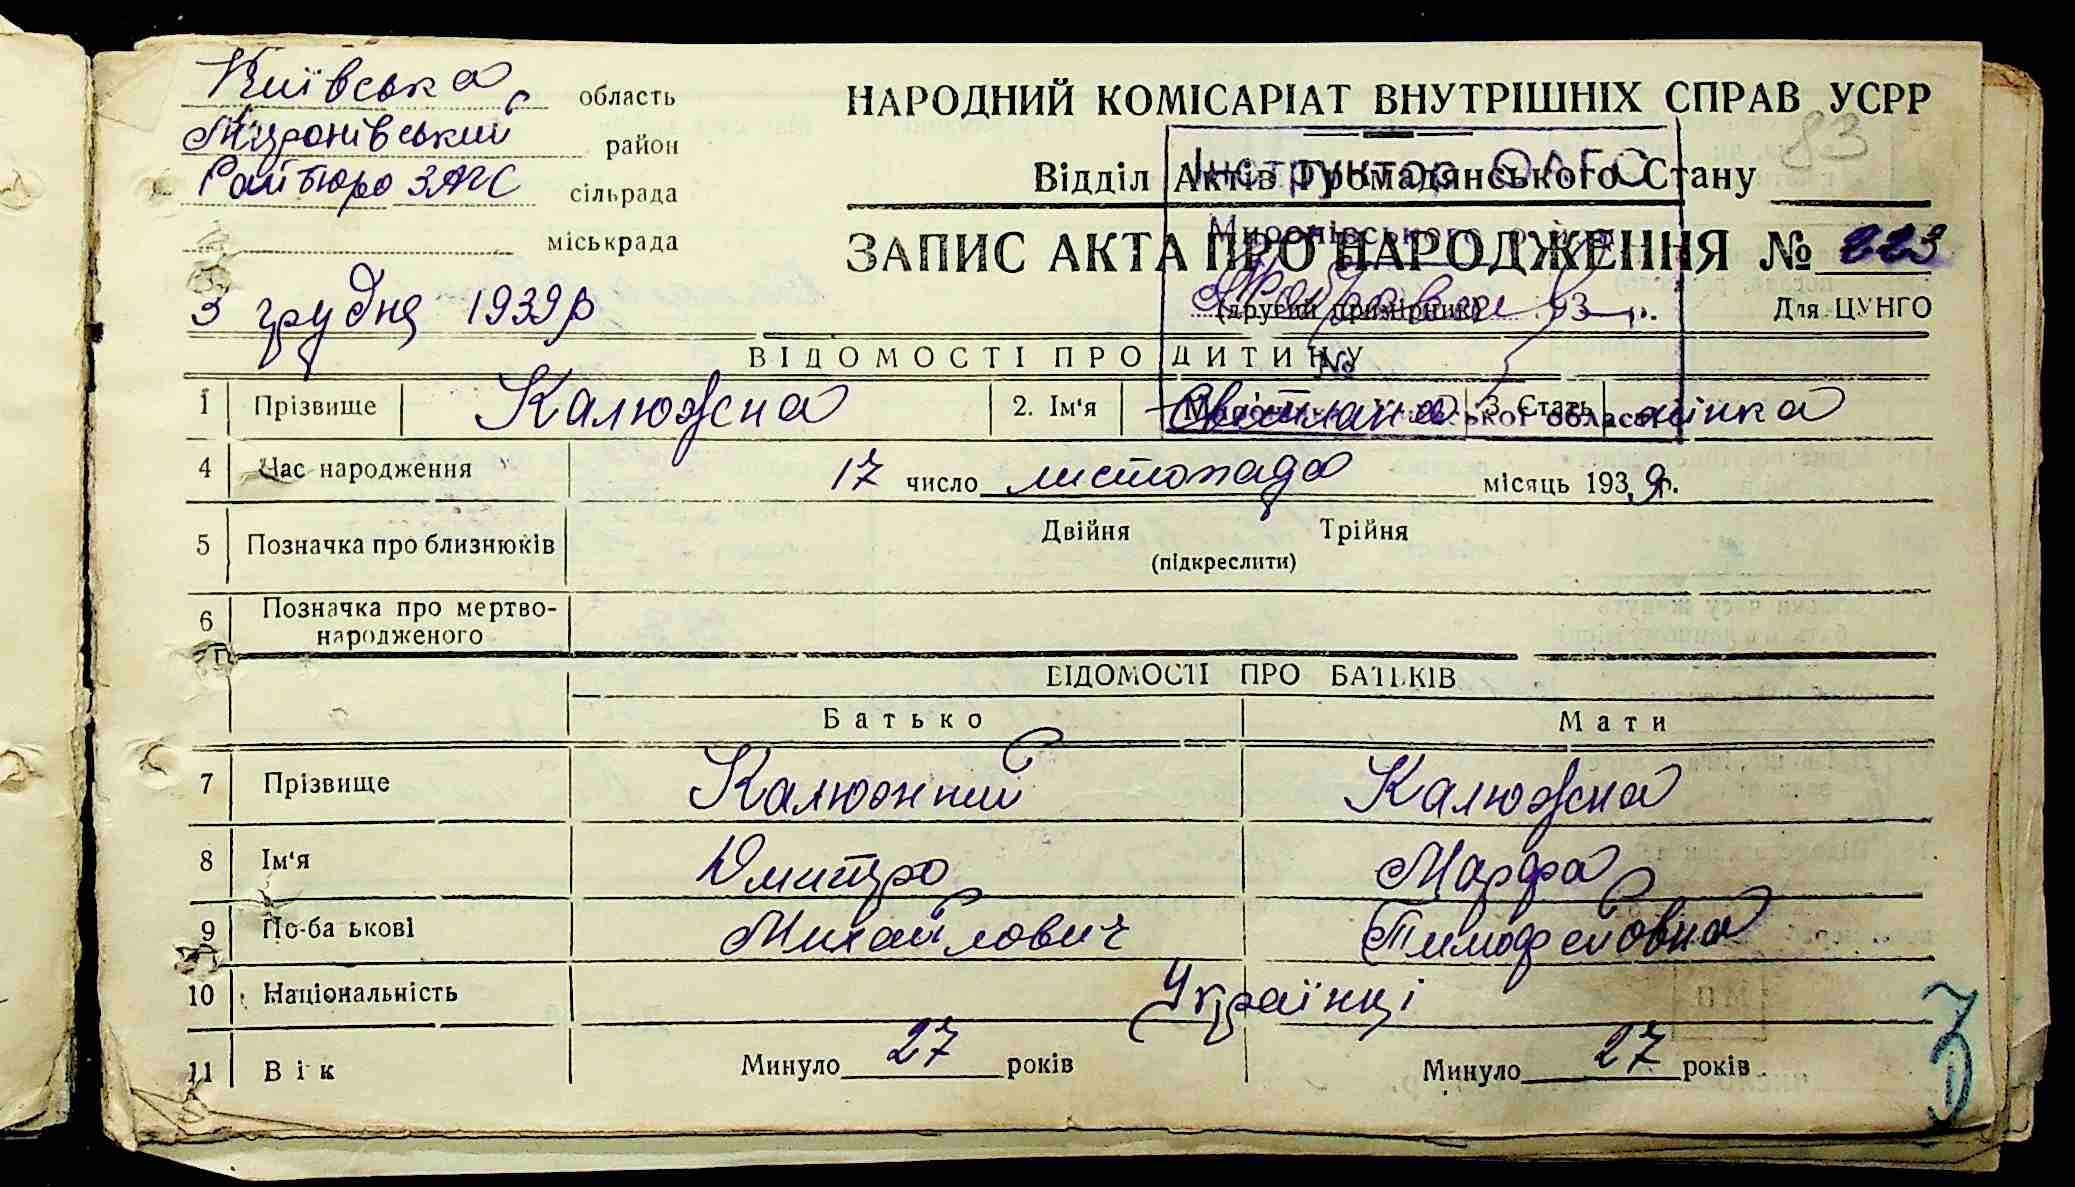 Київська область
Миронівський район
Райбюро ЗАГС сільрада
міськрада
3 грудня 1939 р
НАРОДНИЙ КОМІСАРІАТ ВНУТРІШНІХ СПРАВ УСРР
83
Відділ Актів Громадянського Стану
Інструктор ОАГС
Миронівського
ЗАПИС АКТА ПРО НАРОДЖЕННЯ № 223
(другий примірник) 193 р.
Для ЦУНГО
№
ВІДОМОСТІ ПРО ДИТИНУ
1 Прізвище Калюжна 2. Ім'я Світлана 3. Стать жінка
4 Час народження 17 число листопада місяць 1939 р.
5 Позначка про близнюків Двійня Трійня
(підкреслити)
6 Позначка про мертво-
народженого
ВІДОМОСТІ ПРО БАТЬКІВ
Батько Мати
7 Прізвище Калюжний Калюжна
8 Ім'я Дмитро Марфа
9 По-ба ькові Михайлович Тимофеївна
10 Національність Українці
11 Вік Минуло 27 років Минуло 27 років
З